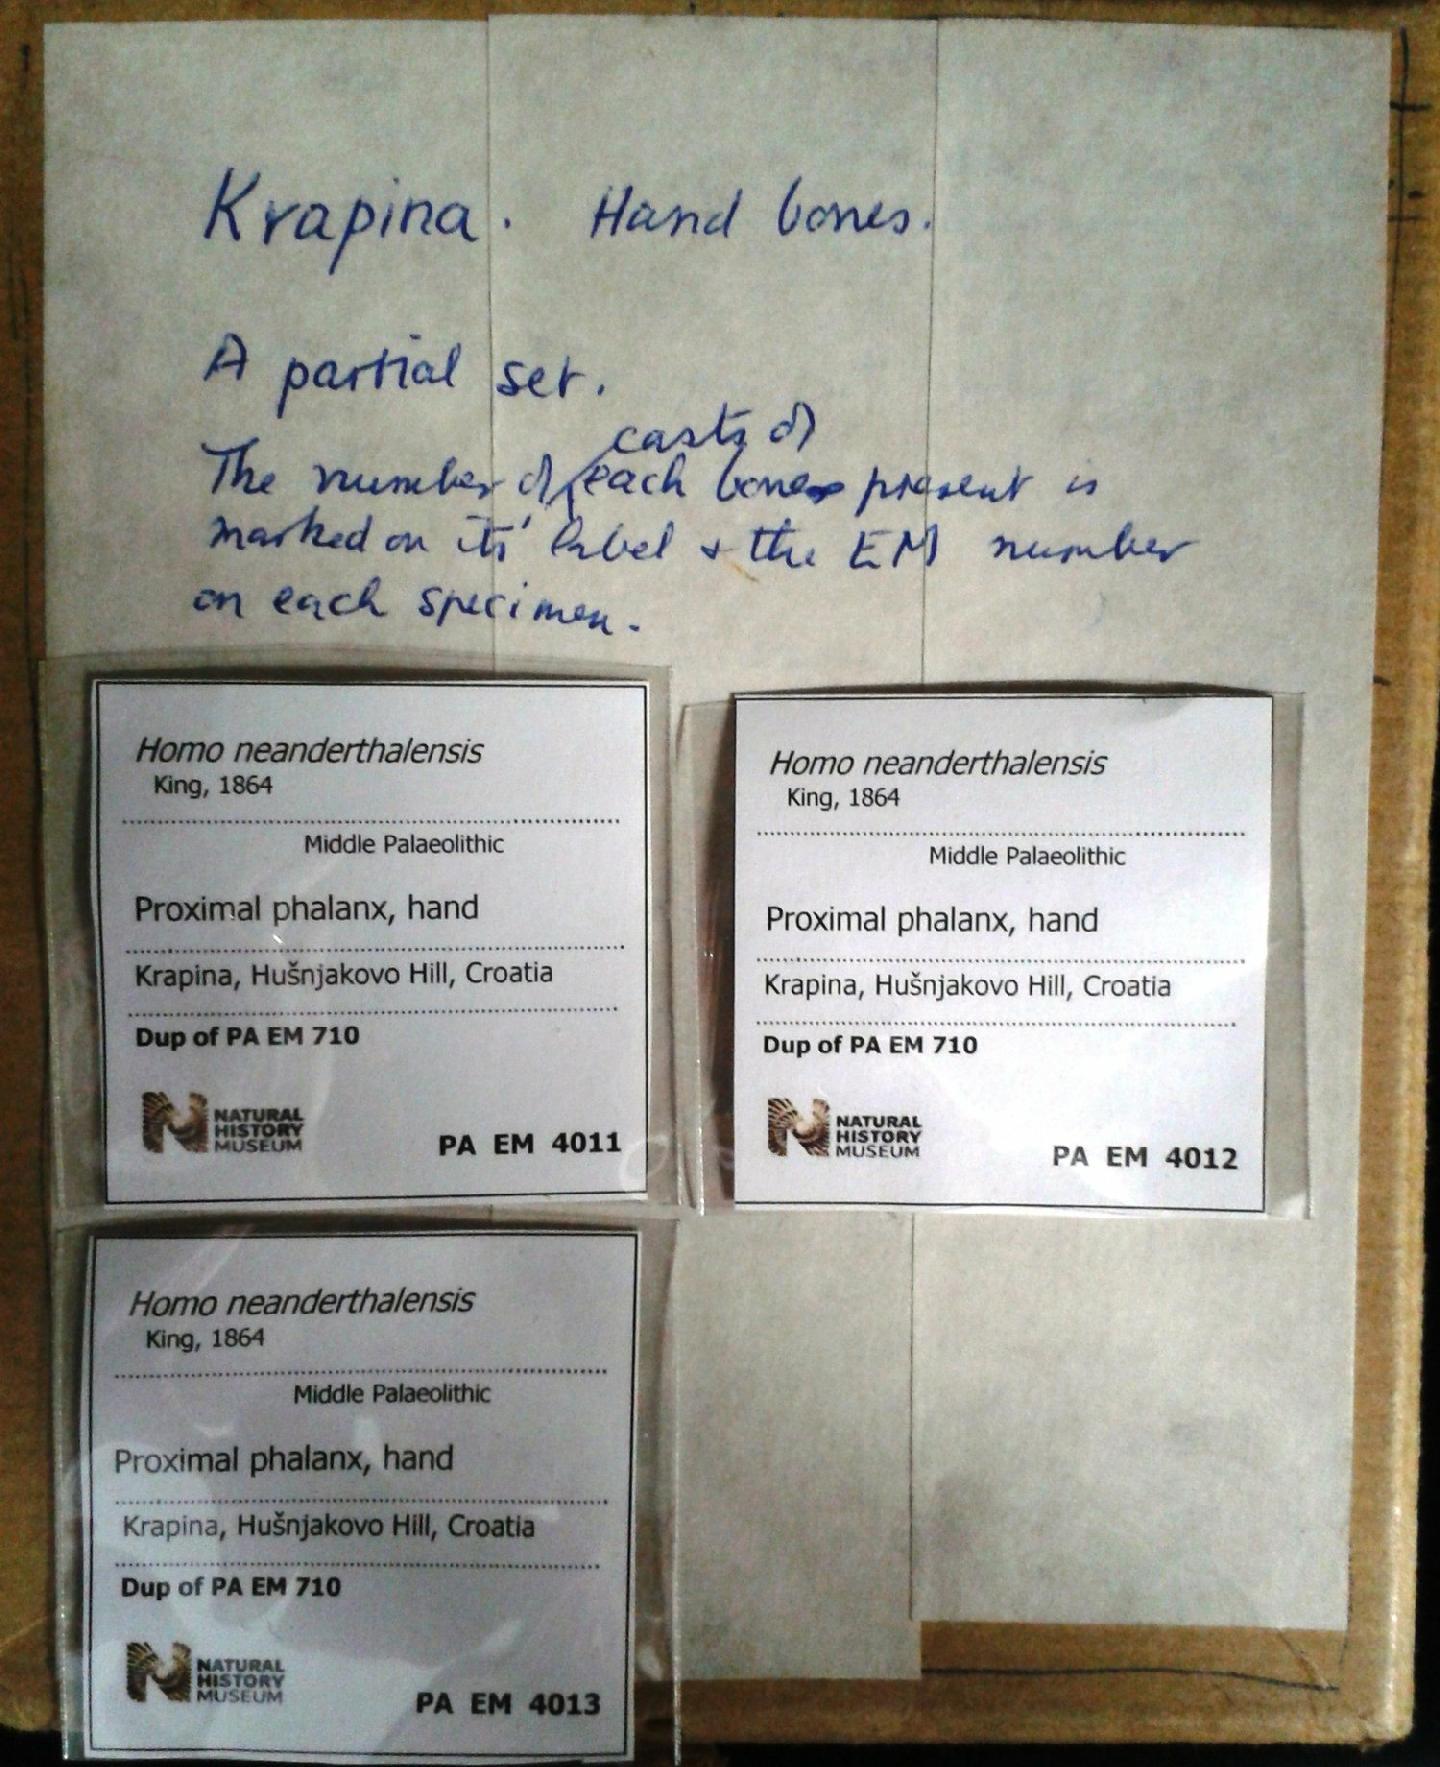 Krapina. Hand bones.
A partial set.
casts of
The number of each bone present is
marked on its' label & the EM number
on each specimen.
Homo neanderthalensis
King, 1864
Middle Palaeolithic
Proximal phalanx, hand
Krapina, Hušnjakovo Hill, Croatia
Dup of PA EM 710
NATURAL
HISTORY
MUSEUM
PA EM 4011
Homo neanderthalensis
King, 1864
Middle Palaeolithic
Proximal phalanx, hand
Krapina, Hušnjakovo Hill, Croatia
Dup of PA EM 710
NATURAL
HISTORY
MUSEUM
PA EM 4012
Homo neanderthalensis
King, 1864
Middle Palaeolithic
Proximal phalanx, hand
Krapina, Hušnjakovo Hill, Croatia
Dup of PA EM 710
NATURAL
HISTORY
MUSEUM
PA EM 4013